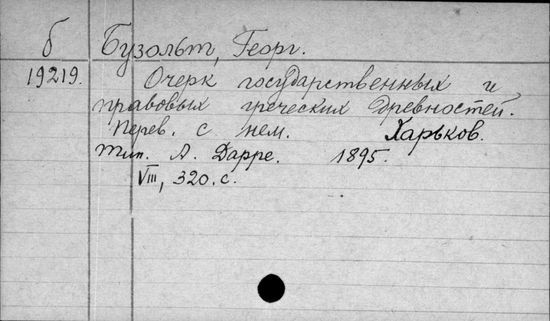 б Бузольт, Георг.
19219. Очерк государственных и
правовых греческих древностей.
Перев. с нем. Харьков.
Тип. А. Дарре. 1895.
VIII, 320. с.